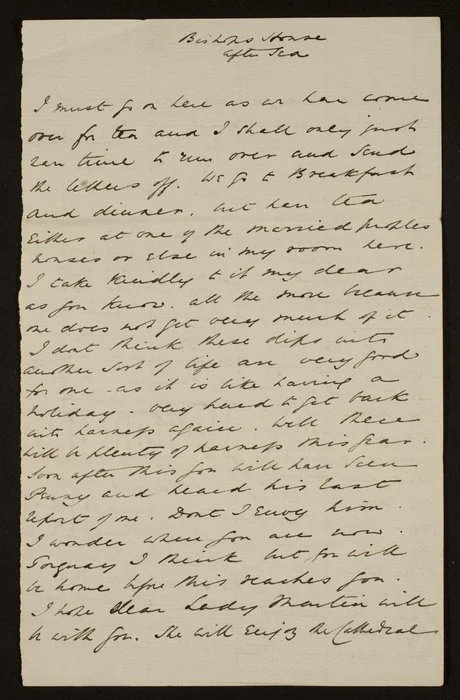 Bishops House
after Tea
I must go on here as we have come
over for tea and I shall only just
have time to run over and send
the letters off. We go to Breakfast
and dinner. but have tea
Either at one of the married peoples
houses or else in my room here.
I take kindly to it my dear
as you know. all the more because
one does not get very much of it.
I dont think these dips into
another sort of life are very good
for one. as it is like having a
holiday. very hard to get back
into harness again. Well there
will be plenty of harness this year.
Soon after this you will have seen
and heard his last
report of me. Dont I Envy him.
I wonder where you are now
Torquay I think but you will
be home before this reaches you.
I hope dear Lady Martin will
be with you. She will Enjoy the Cathedral